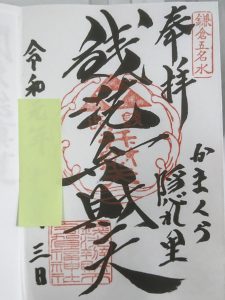 鎌倉五名水
奉拝
かまくら
隠れ里
銭洗弁財天
令和
三日